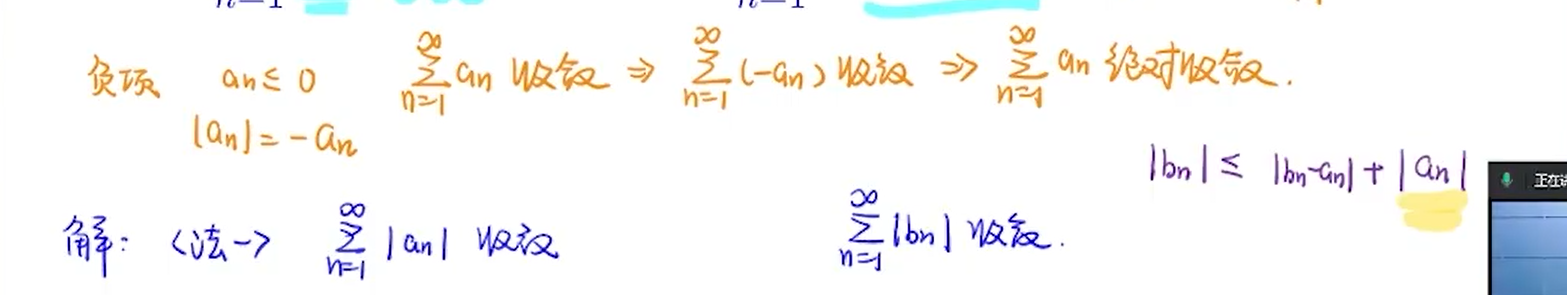 n=1 n=1
负项 an≤0 ∑_{n=1}^{∞} an 收敛 ⇒ ∑_{n=1}^{∞} (-an) 收敛 ⇒ ∑_{n=1}^{∞} an 绝对收敛.
|an|=-an
|bn|≤ |bn-an|+|an|
正在讲
解: <法一> ∑_{n=1}^{∞} |an| 收敛 ∑_{n=1}^{∞} |bn| 收敛.